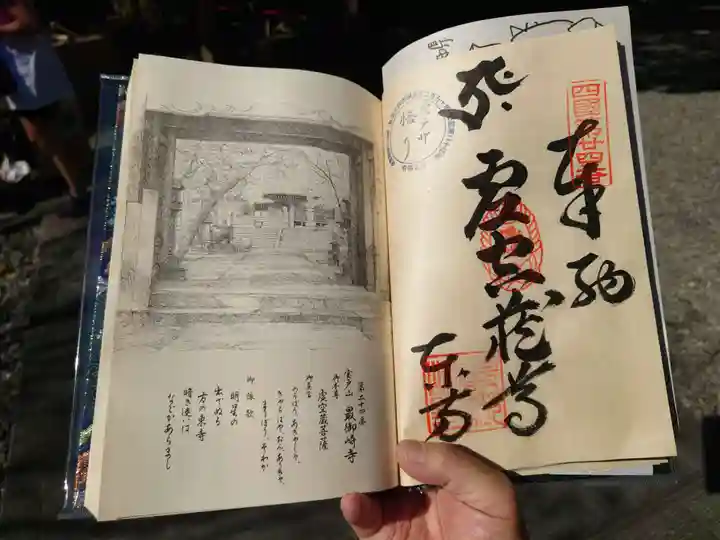 四國第廿四番
奉納
虚空蔵尊
東寺
悟り
第二十四番
室戸山 最御崎寺
御本尊 虚空蔵菩薩
御真言
のうぼう、あきゃしゃ、
きゃらばや、おん、ありきゃ、
まりぼり、そわか
御詠歌
明星の
出でぬる
方の東寺
暗き迷は
などかあらまし